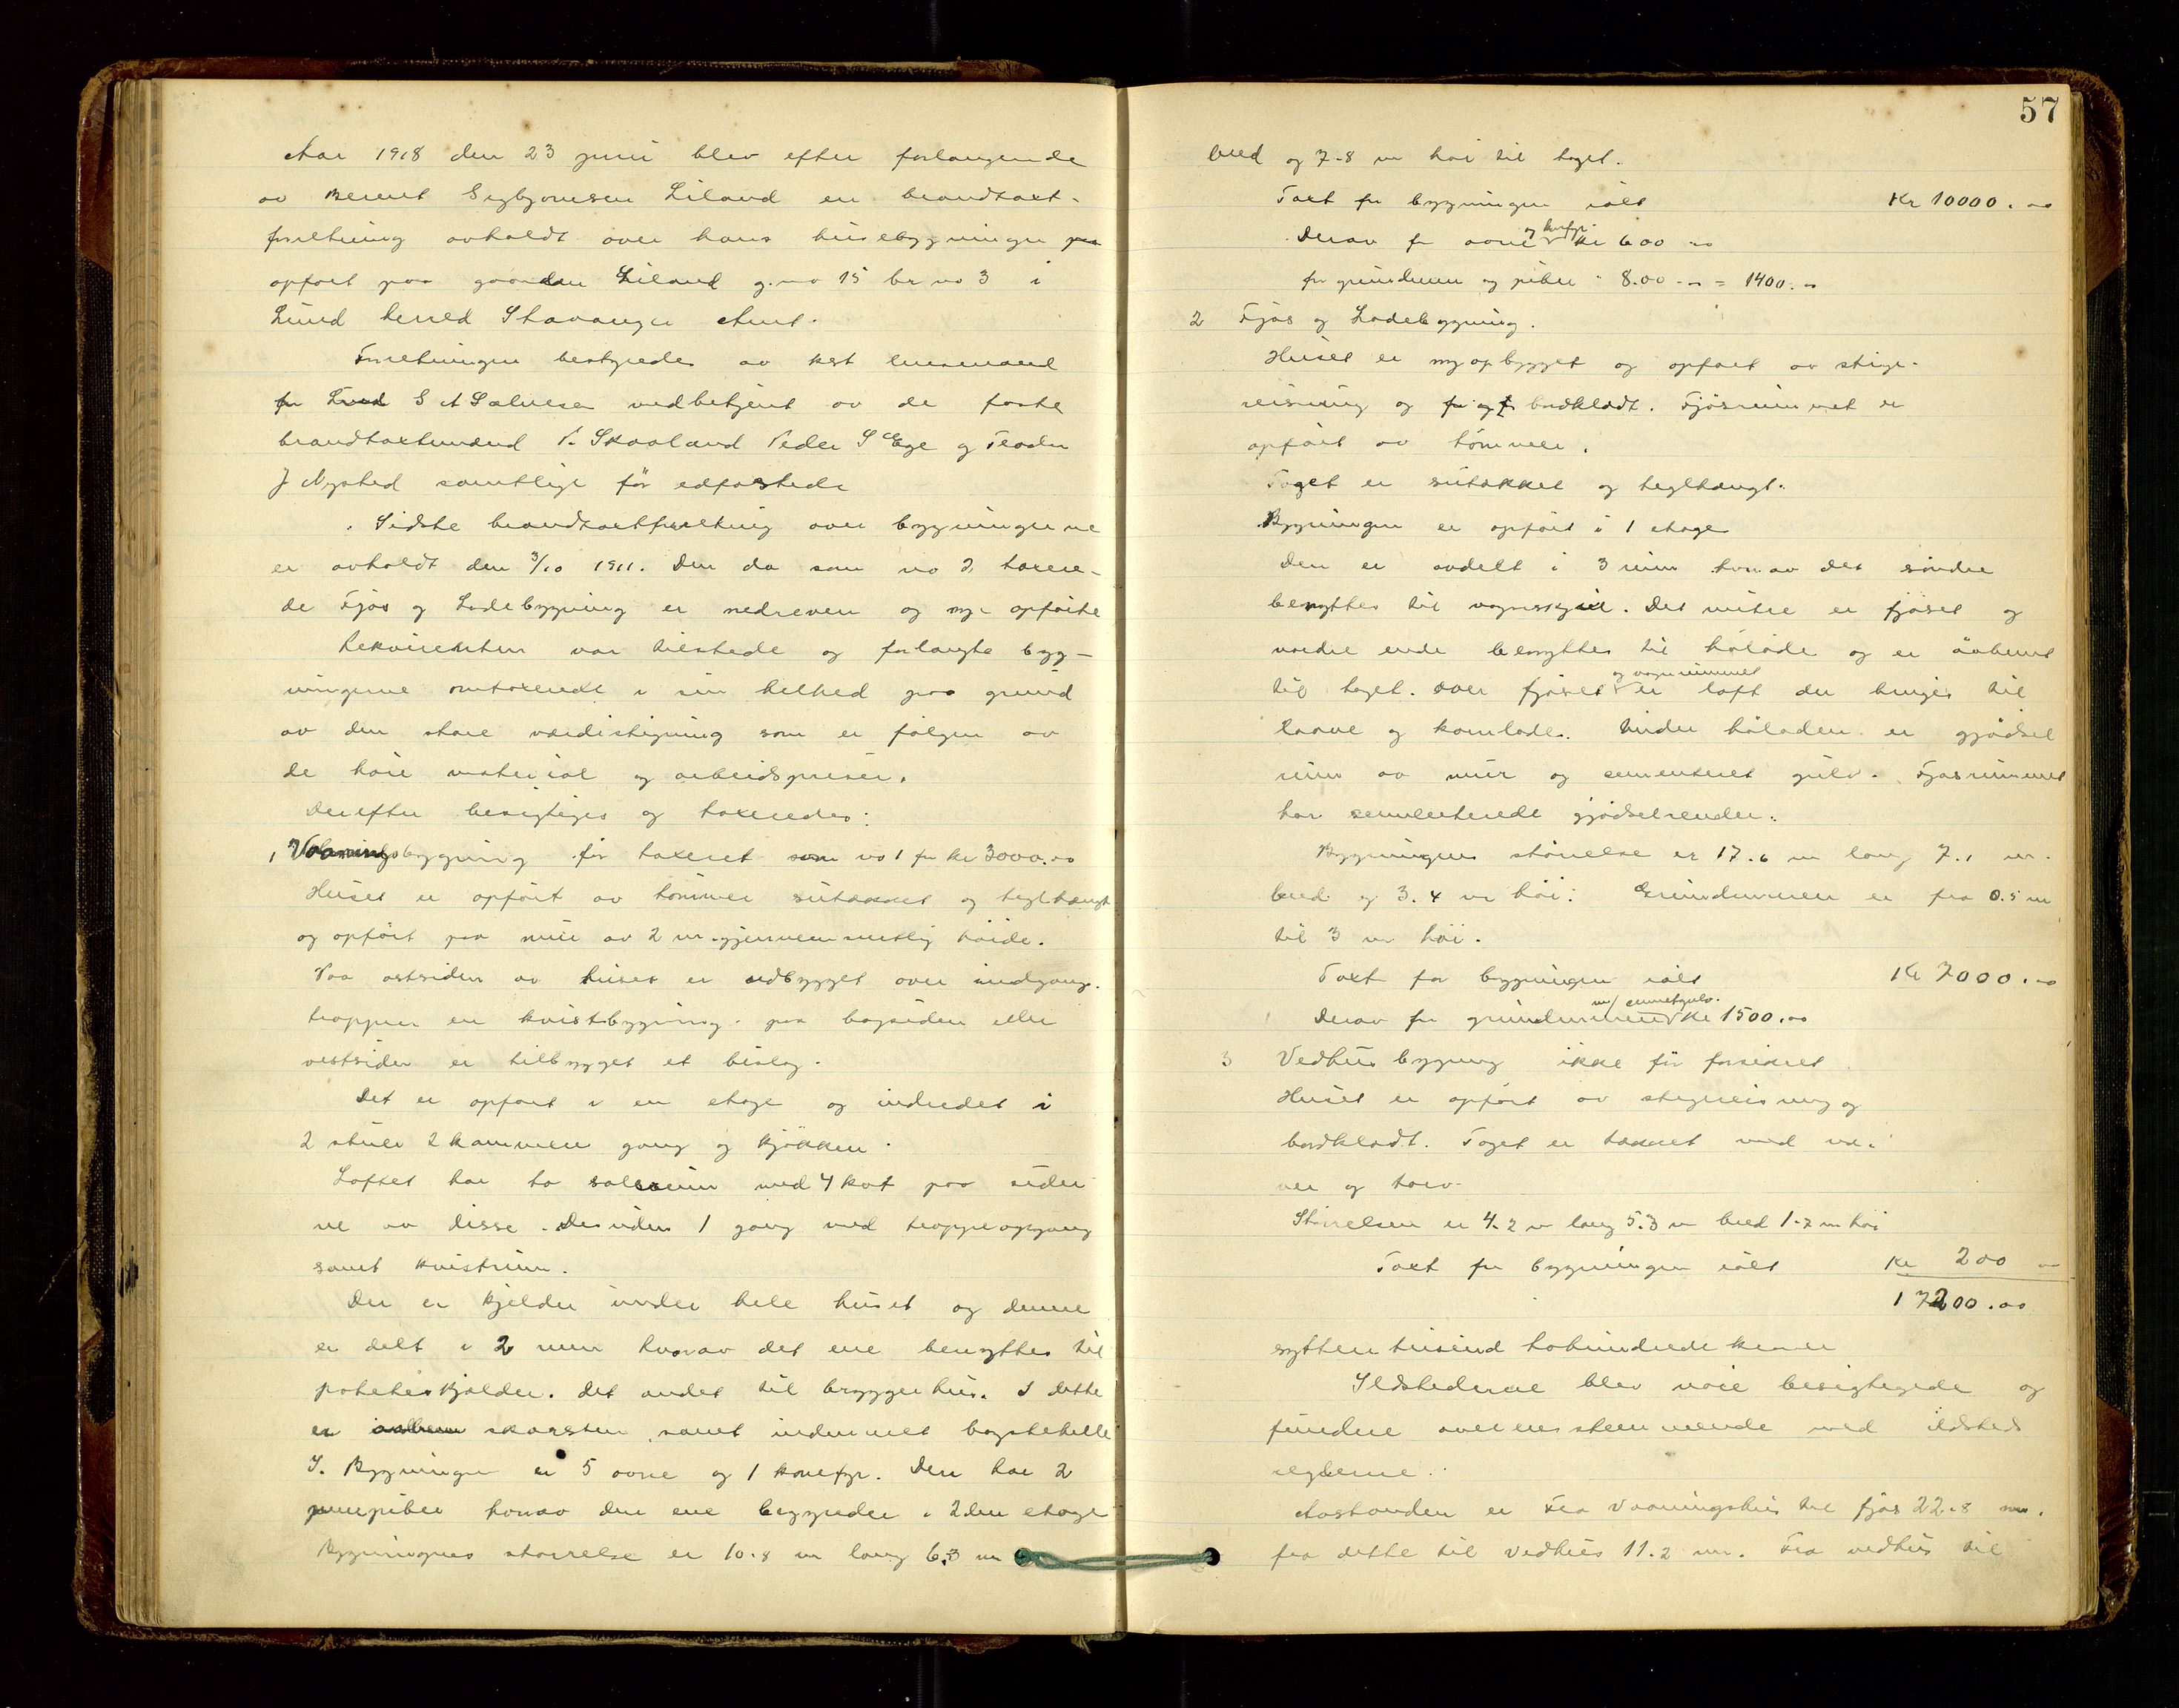 Aar 1918 den 23 juni blev efter forlangende
av Berent Sigbjørnsen Liland en brandtaxt-
forretning avholdt over hans husebygninger paa
opført paa gaarden Liland g.no 15 br no 3 i
Lund herred Stavanger Amt.
Forretningen bestyredes av kst lensmand
for Lund S A Salvesen medbetjent av de faste
brandtaxtmænd P. Skaaland Peder S Ege og Teodor
J Nysted samtlige før edfæstede
Sidste brandtaxtforretning over bygningerne
er avholdt den 3/10 1911. Den da som no 2 taxere-
de Fjøs og Ladebygning er nedreven og ny opførte
Rekvirenten var tilstede og forlangte byg-
ningerne omtaxerede i sin helhed paa grund
av den store værdistigning som er følgen av
de høie material og arbeidspriser.
Derefter besigtiges og taxeredes:
1 Vaaningsbygning før taxeret som no 1 for kr 3000.00
Huset er opført av tømmer sutækket og teglhængt
og opført paa mur av 2 m gjennemsnitlig høide.
Paa østsiden av huset er udbygget over indgangs-
trappen en kvistbygning. paa bagsiden eller
vestsiden er tilbygget et bislag.
Det er opført i en etage og indredet i
2 stuer 2 kammere gang og kjøkken.
Loftet har to salsrum med 4 kot paa sider
ne av disse. Desuden 1 gang med trappeopgang
samt kvistrum.
Der er kjelder under hele huset og denne
er delt i 2 rum hvorav det ene benyttes til
poteteskjelder. det andet til bryggerhus. I dette
er aaben skorsten, samt indmuret bagstehelle
I. Bygningen er 5 ovne og 1 komfyr. Den har 2
murpiber hvorav den ene begynder i 2den etage
Bygningens størrelse er 10.8 m lang 6.3 m
57
bred og 7.8 m høi til taget.
Taxt for bygningen ialt Kr 10000.00
og komfyr
Derav for ovne kr 600 00
for grundmur og piber " 800 - = 1400.00
2 Fjøs og Ladebygning.
Huset er ny opbygget og opført av stige-
reisning og bordklædt. Fjøsrummet er
opført av tømmer.
Taget er sutækket og teglhængt.
Bygningen er opført i 1 etage
Den er avdelt i 3 rum hvorav det søndre
benyttes til vognskjul. Det mitre er fjøset og
nordre ende benyttes til høløde og er aabent
og vognrummet
til taget. Over fjøset er loft der bruges til
laave og kornlade. Under høladen er gjødsel
rum av mur og sementeret gulv. Fjøsrummet
har sementerede gjødselrender.
Bygningens størrelse er 17.6 m lang 7.1 m.
bred og 3.4 m høi. Grundmuren er fra 0.5 m
til 3 m høi.
Taxt for bygningen ialt Kr 7000.00
m/ sementgulv.
Derav for grundmuren kr 1500.00
3 Vedhus bygning ikke før forsikret
Huset er opført av stigreisning og
bordklædt. Taget er tækket med næ-
ver og torv.
Størrelsen er 4.2 m lang 5.3 m bred 1.7 m høi
Taxt for bygningen ialt Kr 200 00
17200.00
sytten tusind tohundrede kroner
Ildstederne blev nøie besigtigede og
fundne overensstemmende med ildsteds
reglerne.
Avstanden er fra vaaningshus til fjøs 22.8 m.
fra dette til vedhus 11.2 m. Fra vedhus til